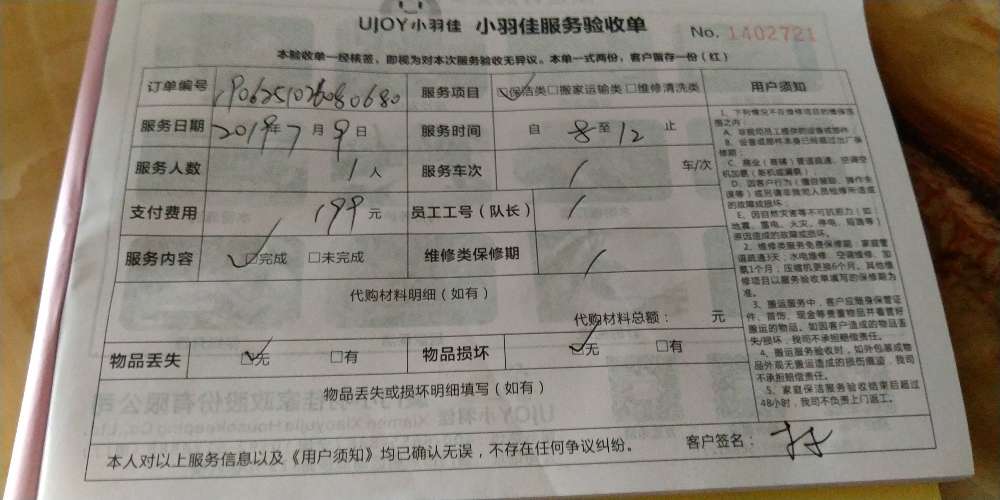 UJOY小羽佳 小羽佳服务验收单 No. 1402721
本验收单一经核签，即视为对本次服务验收无异议。本单一式两份，客户留存一份（红）
订单编号 服务项目 ☑保洁类□搬家运输类□维修清洗类
服务日期 2019年7月9日 服务时间 自 8 至 12 止
服务人数 1人 服务车次 / 车/次
支付费用 199元 员工工号（队长） /
服务内容 ☑完成 □未完成 维修类保修期 /
代购材料明细（如有）
代购材料总额： 元
物品丢失 ☑无 □有 物品损坏 ☑无 □有
物品丢失或损坏明细填写（如有）
本人对以上服务信息以及《用户须知》均已确认无误，不存在任何争议纠纷。 客户签名：
用户须知
1、下列情况不在维修项目的维保范
围之内：
A、非我司员工提供的设备或部件
B、设备或部件本身已经超过出厂保
修期；
C、商业（店铺）管道疏通、空调空
机加氨（新机或漏氨）
D、因客户行为（擅自装卸、操作失
误等）或另请非我司人员检修所造成
的故障或损坏；
E、因自然灾害等不可抗拒力（如：
地震、雷电、火灾、停电、短路等）
原因造成的故障或损坏。
2、维修类服务免费保修期：家庭管
道疏通3天；水电维修、空调维修、加
氨1个月；压缩机更换6个月。其他维
修项目以服务验收单填写的保修期为
准。
3、搬运服务中，客户应随身保管证
件、首饰、现金等贵重物品并看管好
搬运的物品。如因客户造成的物品丢
失/损坏，我司不承担赔偿责任。
4、搬运服务验收时，如外包装或物
品外观无搬运造成的损伤痕迹，我司
不承担赔偿责任。
5、家庭保洁服务验收结束后超过
48小时，我司不负责上门返工。